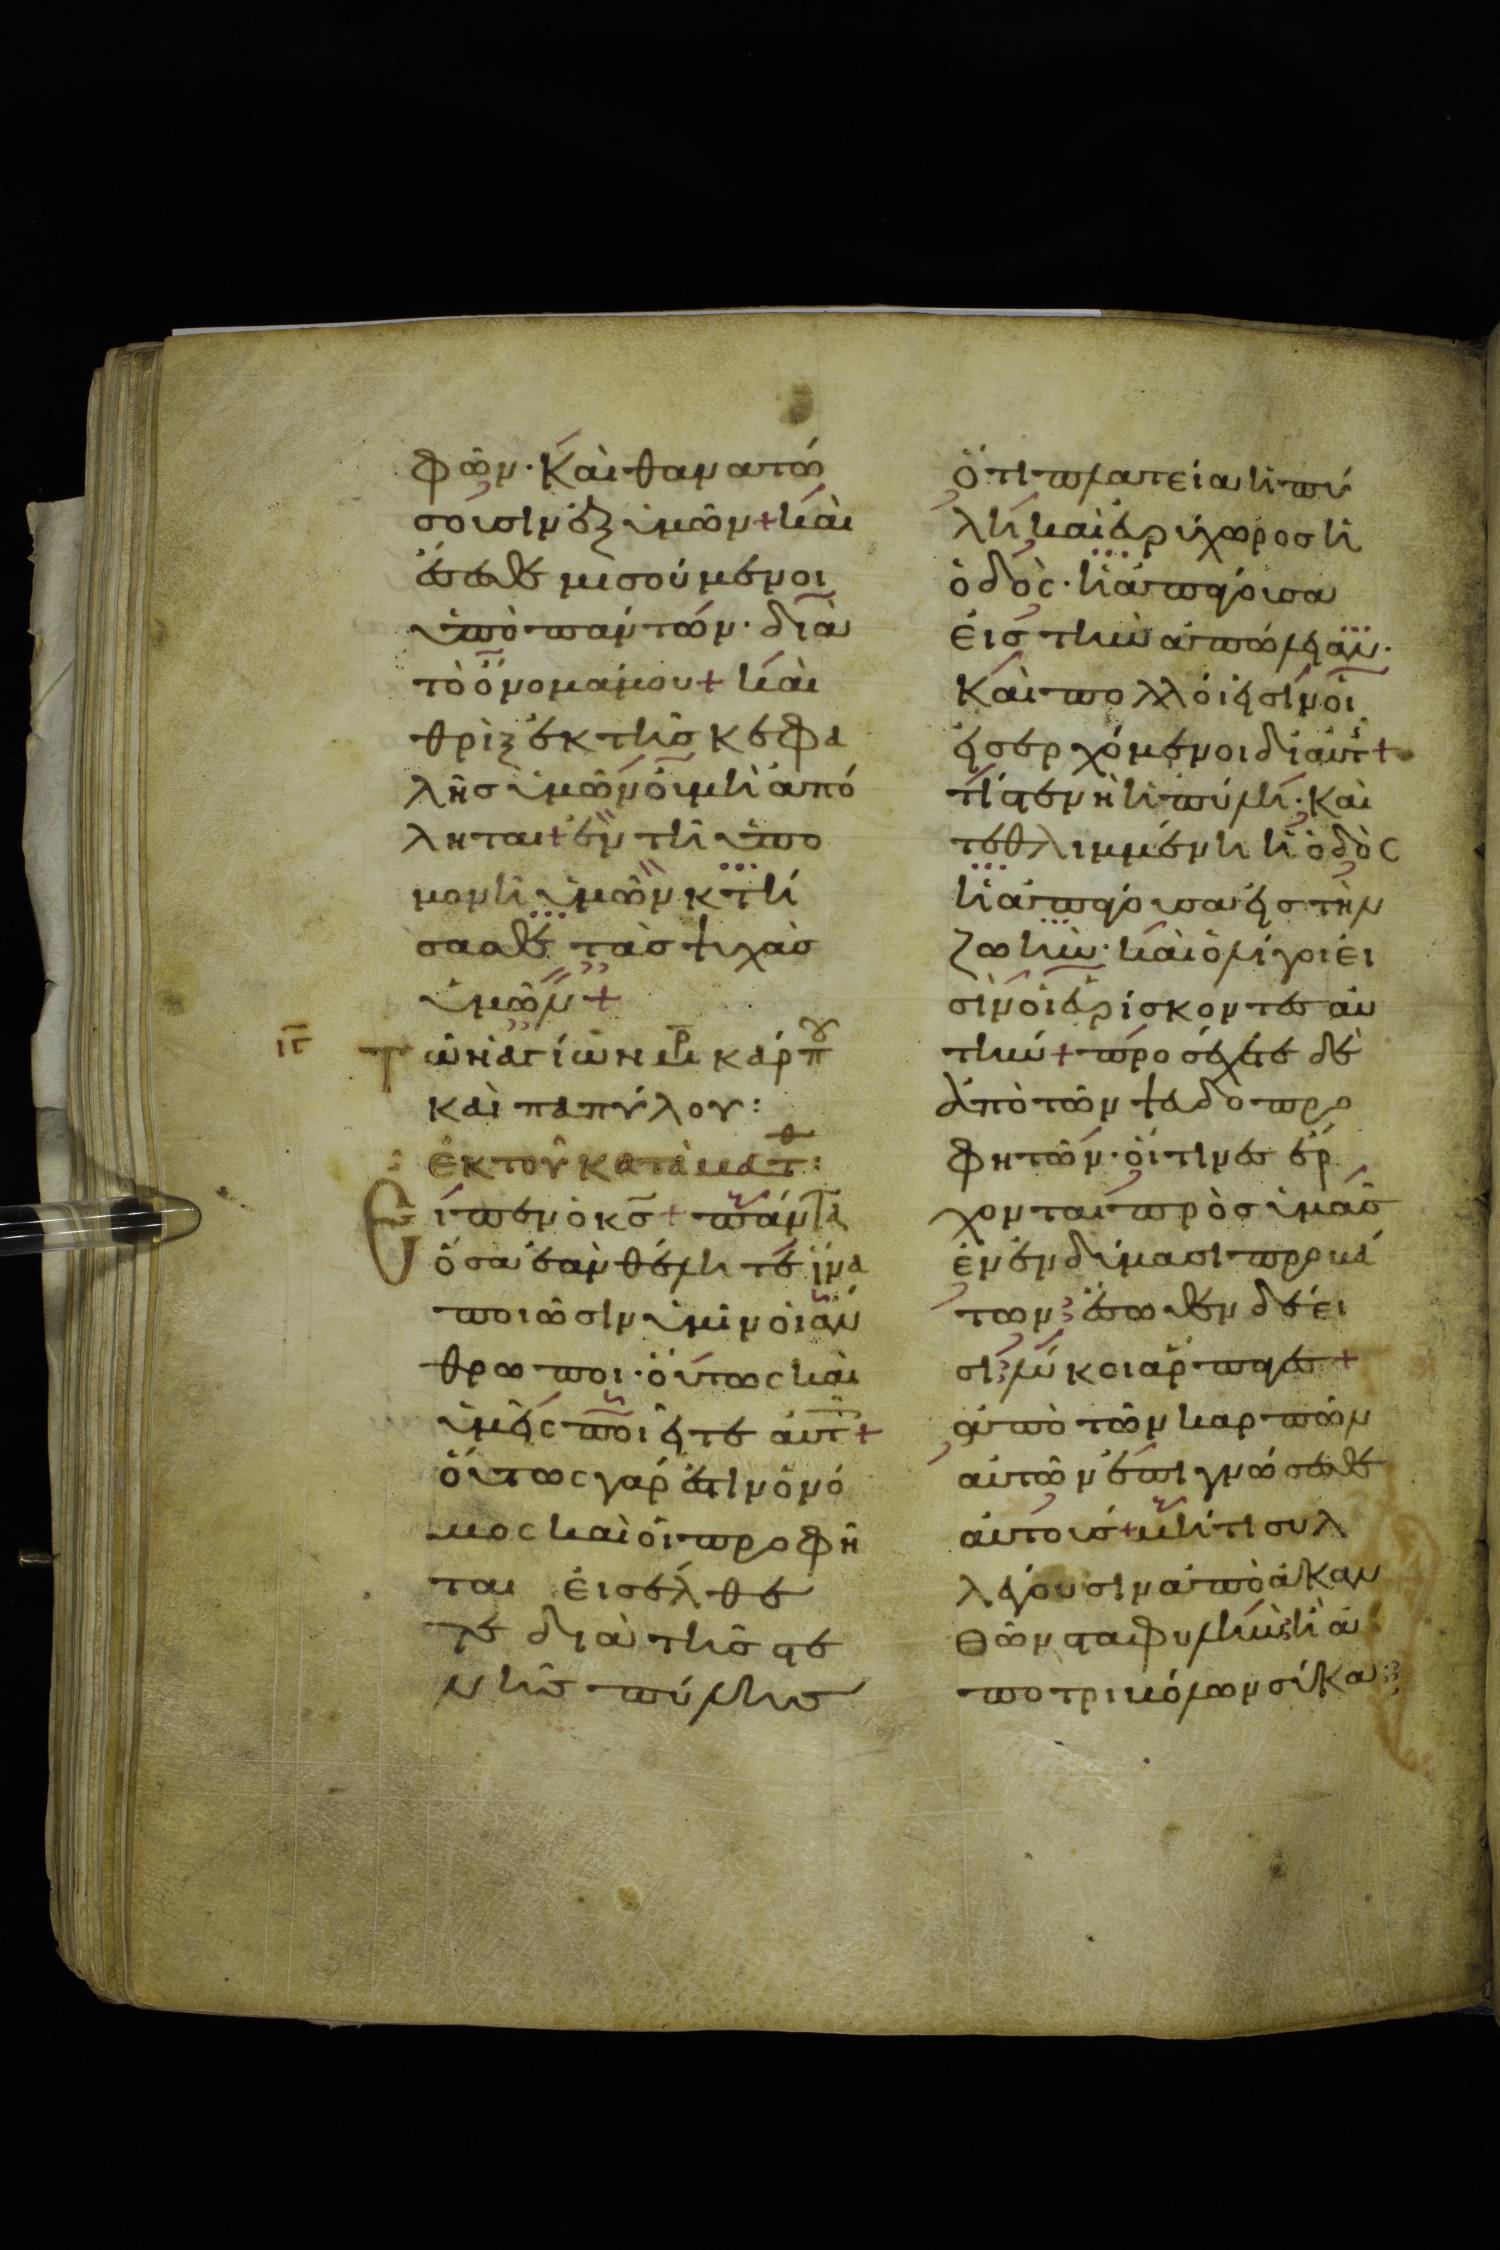 φῶν· Καὶ θανατώ
σουσιν ἐξ ὑμῶν + καὶ
ἔσεσθε μισούμενοι
ὑπὸ πάντων· διὰ
τὸ ὄνομά μου + καὶ
θρὶξ ἐκ τῆς κεφα
λῆς ὑμῶν οὐ μὴ ἀπό
ληται + ἐν τῆ ὑπο
μονῆ ὑμῶν κτή
σασθε τὰς ψυχὰς
ὑμῶν +
ιγ
Τῶν ἁγίων μρ καρπου
καὶ παπύλου:
ἐκ τοῦ κατὰ ματθ:
Εἶπεν ὁ κς + πάντα
ὅσα ἐὰν θέλητε ἵνα
ποιῶσιν ὑμῖν οἱ ἄν
θρωποι· οὕτως καὶ
ὑμεῖς ποιεῖτε αὐτ +
οὕτως γάρ ἐστιν ὁ νό
μος καὶ οἱ προφῆ
ται εἰσέλθε
τε διὰ τῆς στε
νῆς πύλης
ὅτι πλατεία ἡ πύ
λη καὶ εὐρύχωρος ἡ
ὁδὸς· ἡ ἀπάγουσα
εἰς τὴν ἀπώλειαν·
Καὶ πολλοί εἰσιν οἱ
εἰσερχόμενοι δι αὐτ +
τί στενὴ ἡ πύλη· Καὶ
τεθλιμμένη ἡ ὁδὸς
ἡ ἀπάγουσα εἰς τὴν
ζωὴν· καὶ ὀλίγοι εἰ
σὶν οἱ εὑρίσκοντες αὐ
τήν + προσέχετε δὲ
ἀπὸ τῶν ψευδοπρο
φητῶν· οἵτινες ἔρ
χονται πρὸς ὑμᾶς
ἐν ἐνδύμασι προβά
των, ἔσωθεν δέ εἰ
σι λύκοι ἅρπαγες +
ἀπὸ τῶν καρπῶν
αὐτῶν ἐπιγνώσεσθε
αὐτούς + μήτι συλ
λέγουσιν ἀπὸ ἀκαν
θῶν σταφυλὴν, ἢ ἀ
πο τριβόλων σύκα;